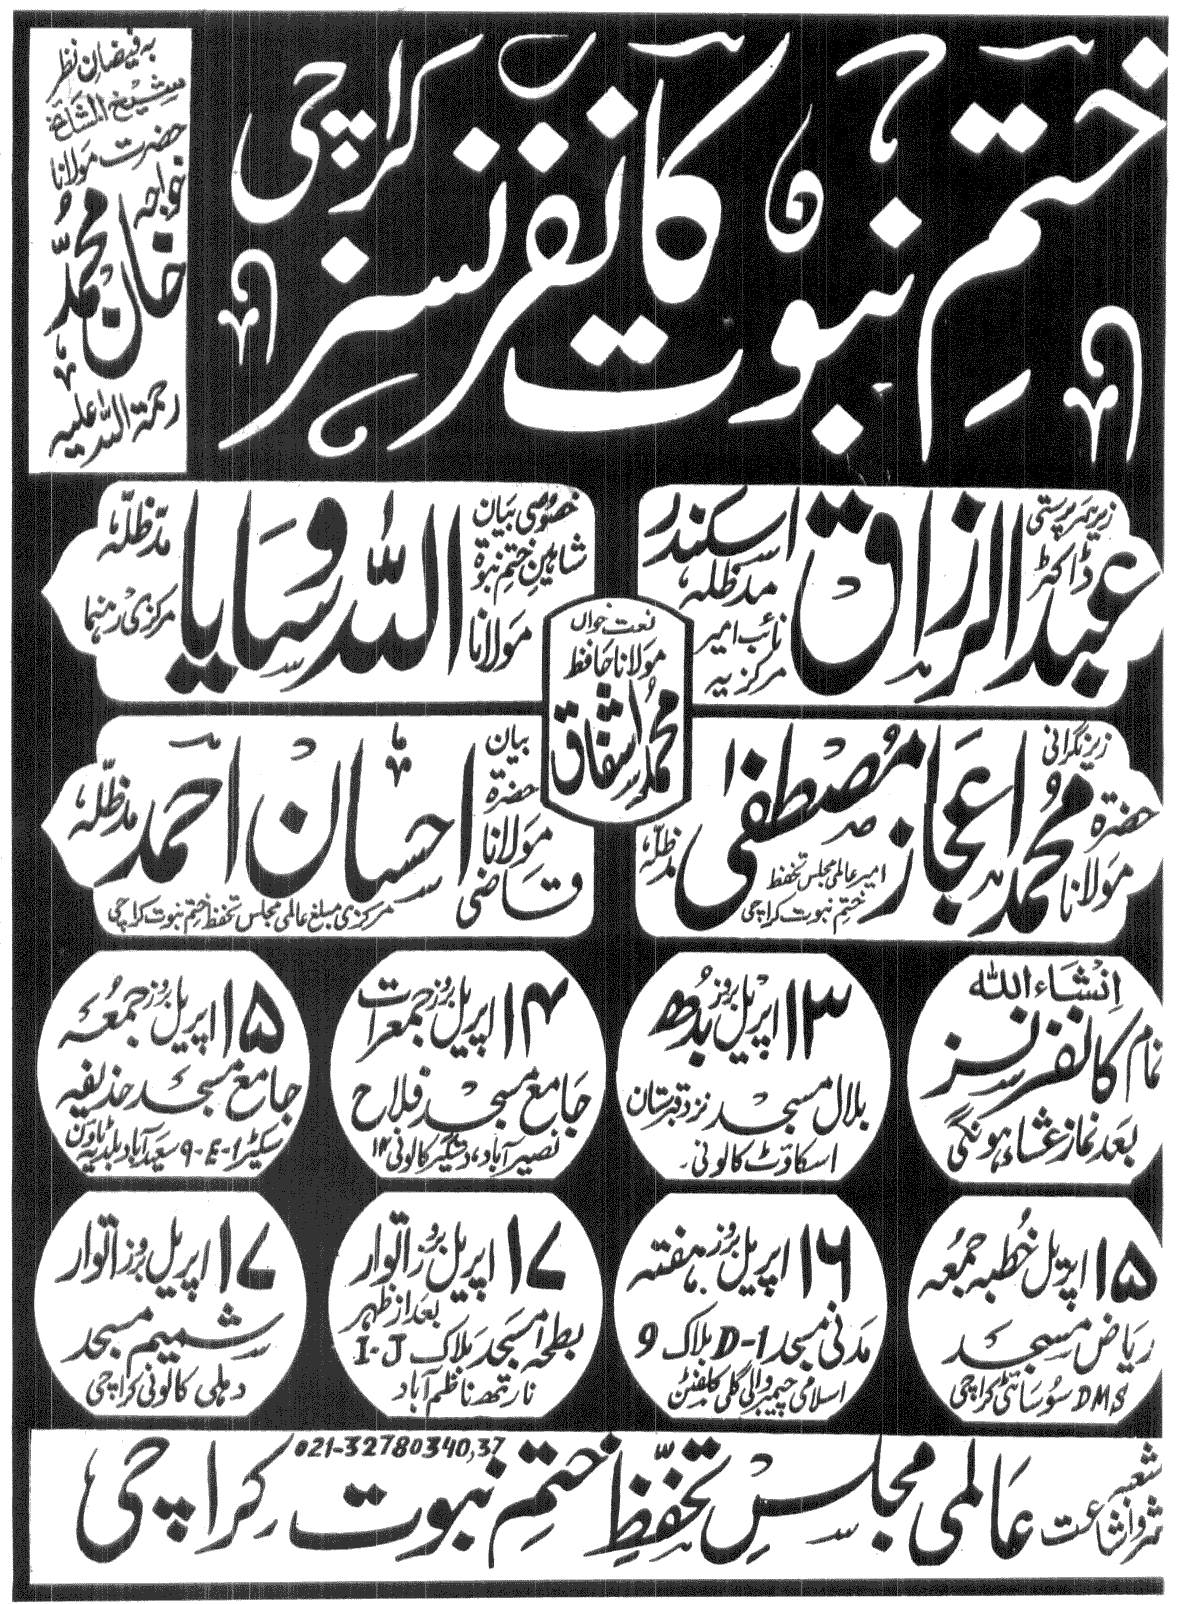 ختمِ نبوت کانفرنسز کراچی
بہ فیضانِ نظر
شیخ المشائخ
حضرت مولانا
خواجہ
خان محمدؒ
رحمۃ اللہ علیہ
زیرِ سرپرستی
ڈاکٹر
عبدالرزاق اسکندر
مدظلہ
نائب امیر
مرکزیہ
خصوصی بیان
شاہینِ ختم نبوۃ
مولانا
اللہ وسایا
مدظلہ
مرکزی رہنما
نعت خواں
مولانا حافظ
محمد اشفاق
زیرِ نگرانی
حضرۃ
مولانا
محمد اعجاز مصطفی
مدظلہ
امیر عالمی مجلس تحفظ
ختم نبوت کراچی
بیان
حضرۃ
مولانا
قاضی
احسان احمد
مدظلہ
مرکزی مبلغ عالمی مجلس تحفظ ختم نبوت کراچی
انشاء اللہ
تمام کانفرنسز
بعد نماز عشاء ہونگی
۱۳ اپریل بروز بدھ
بلال مسجد نزد قبرستان
اسکاؤٹ کالونی۔
۱۴ اپریل بروز جمعرات
جامع مسجد فلاح
نصیر آباد، دستگیر کالونی ۱۴
۱۵ اپریل بروز جمعہ
جامع مسجد حذیفہ
سیکٹر 1-E-9 سعید آباد بلدیہ ٹاؤن
۱۵ اپریل خطبہ جمعہ
ریاض مسجد
DMS سوسائٹی کراچی
۱۶ اپریل بروز ہفتہ
مدنی مسجد D-1 بلاک 9
اسلامی چیمبر والی گلی کلفٹن
۱۷ اپریل بروز اتوار
بعد از ظہر
بطحا مسجد بلاک I-J
نارتھ ناظم آباد
۱۷ اپریل بروز اتوار
شمیم مسجد
دہلی کالونی کراچی
021-32780340,37
شعبہ
نشر و اشاعت
عالمی مجلسِ تحفظِ ختمِ نبوت کراچی